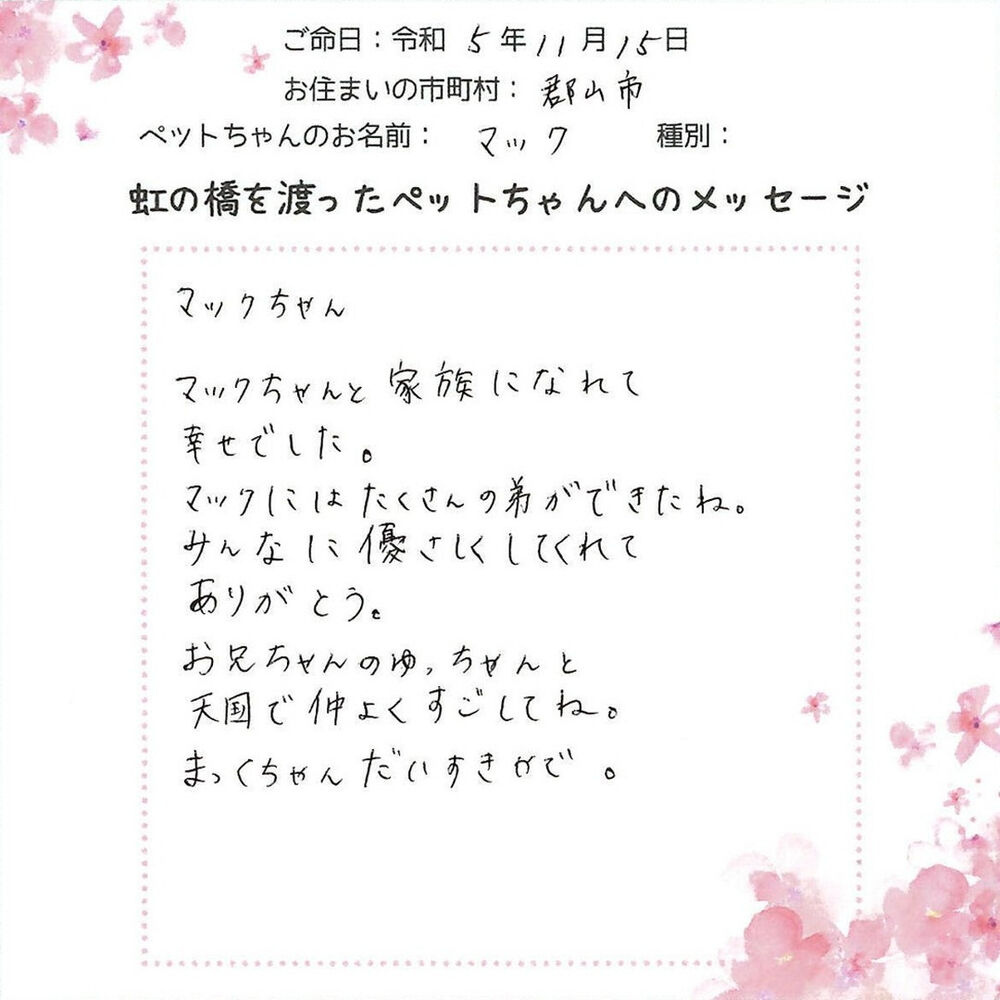 ご命日：令和 5年11月15日
お住まいの市町村： 郡山市
ペットちゃんのお名前： マック 種別：
虹の橋を渡ったペットちゃんへのメッセージ
マックちゃん
マックちゃんと家族になれて
幸せでした。
マックにはたくさんの弟ができたね。
みんなに優さしくしてくれて
ありがとう。
お兄ちゃんのゆっちゃんと
天国で仲よくすごしてね。
まっくちゃんだいすき